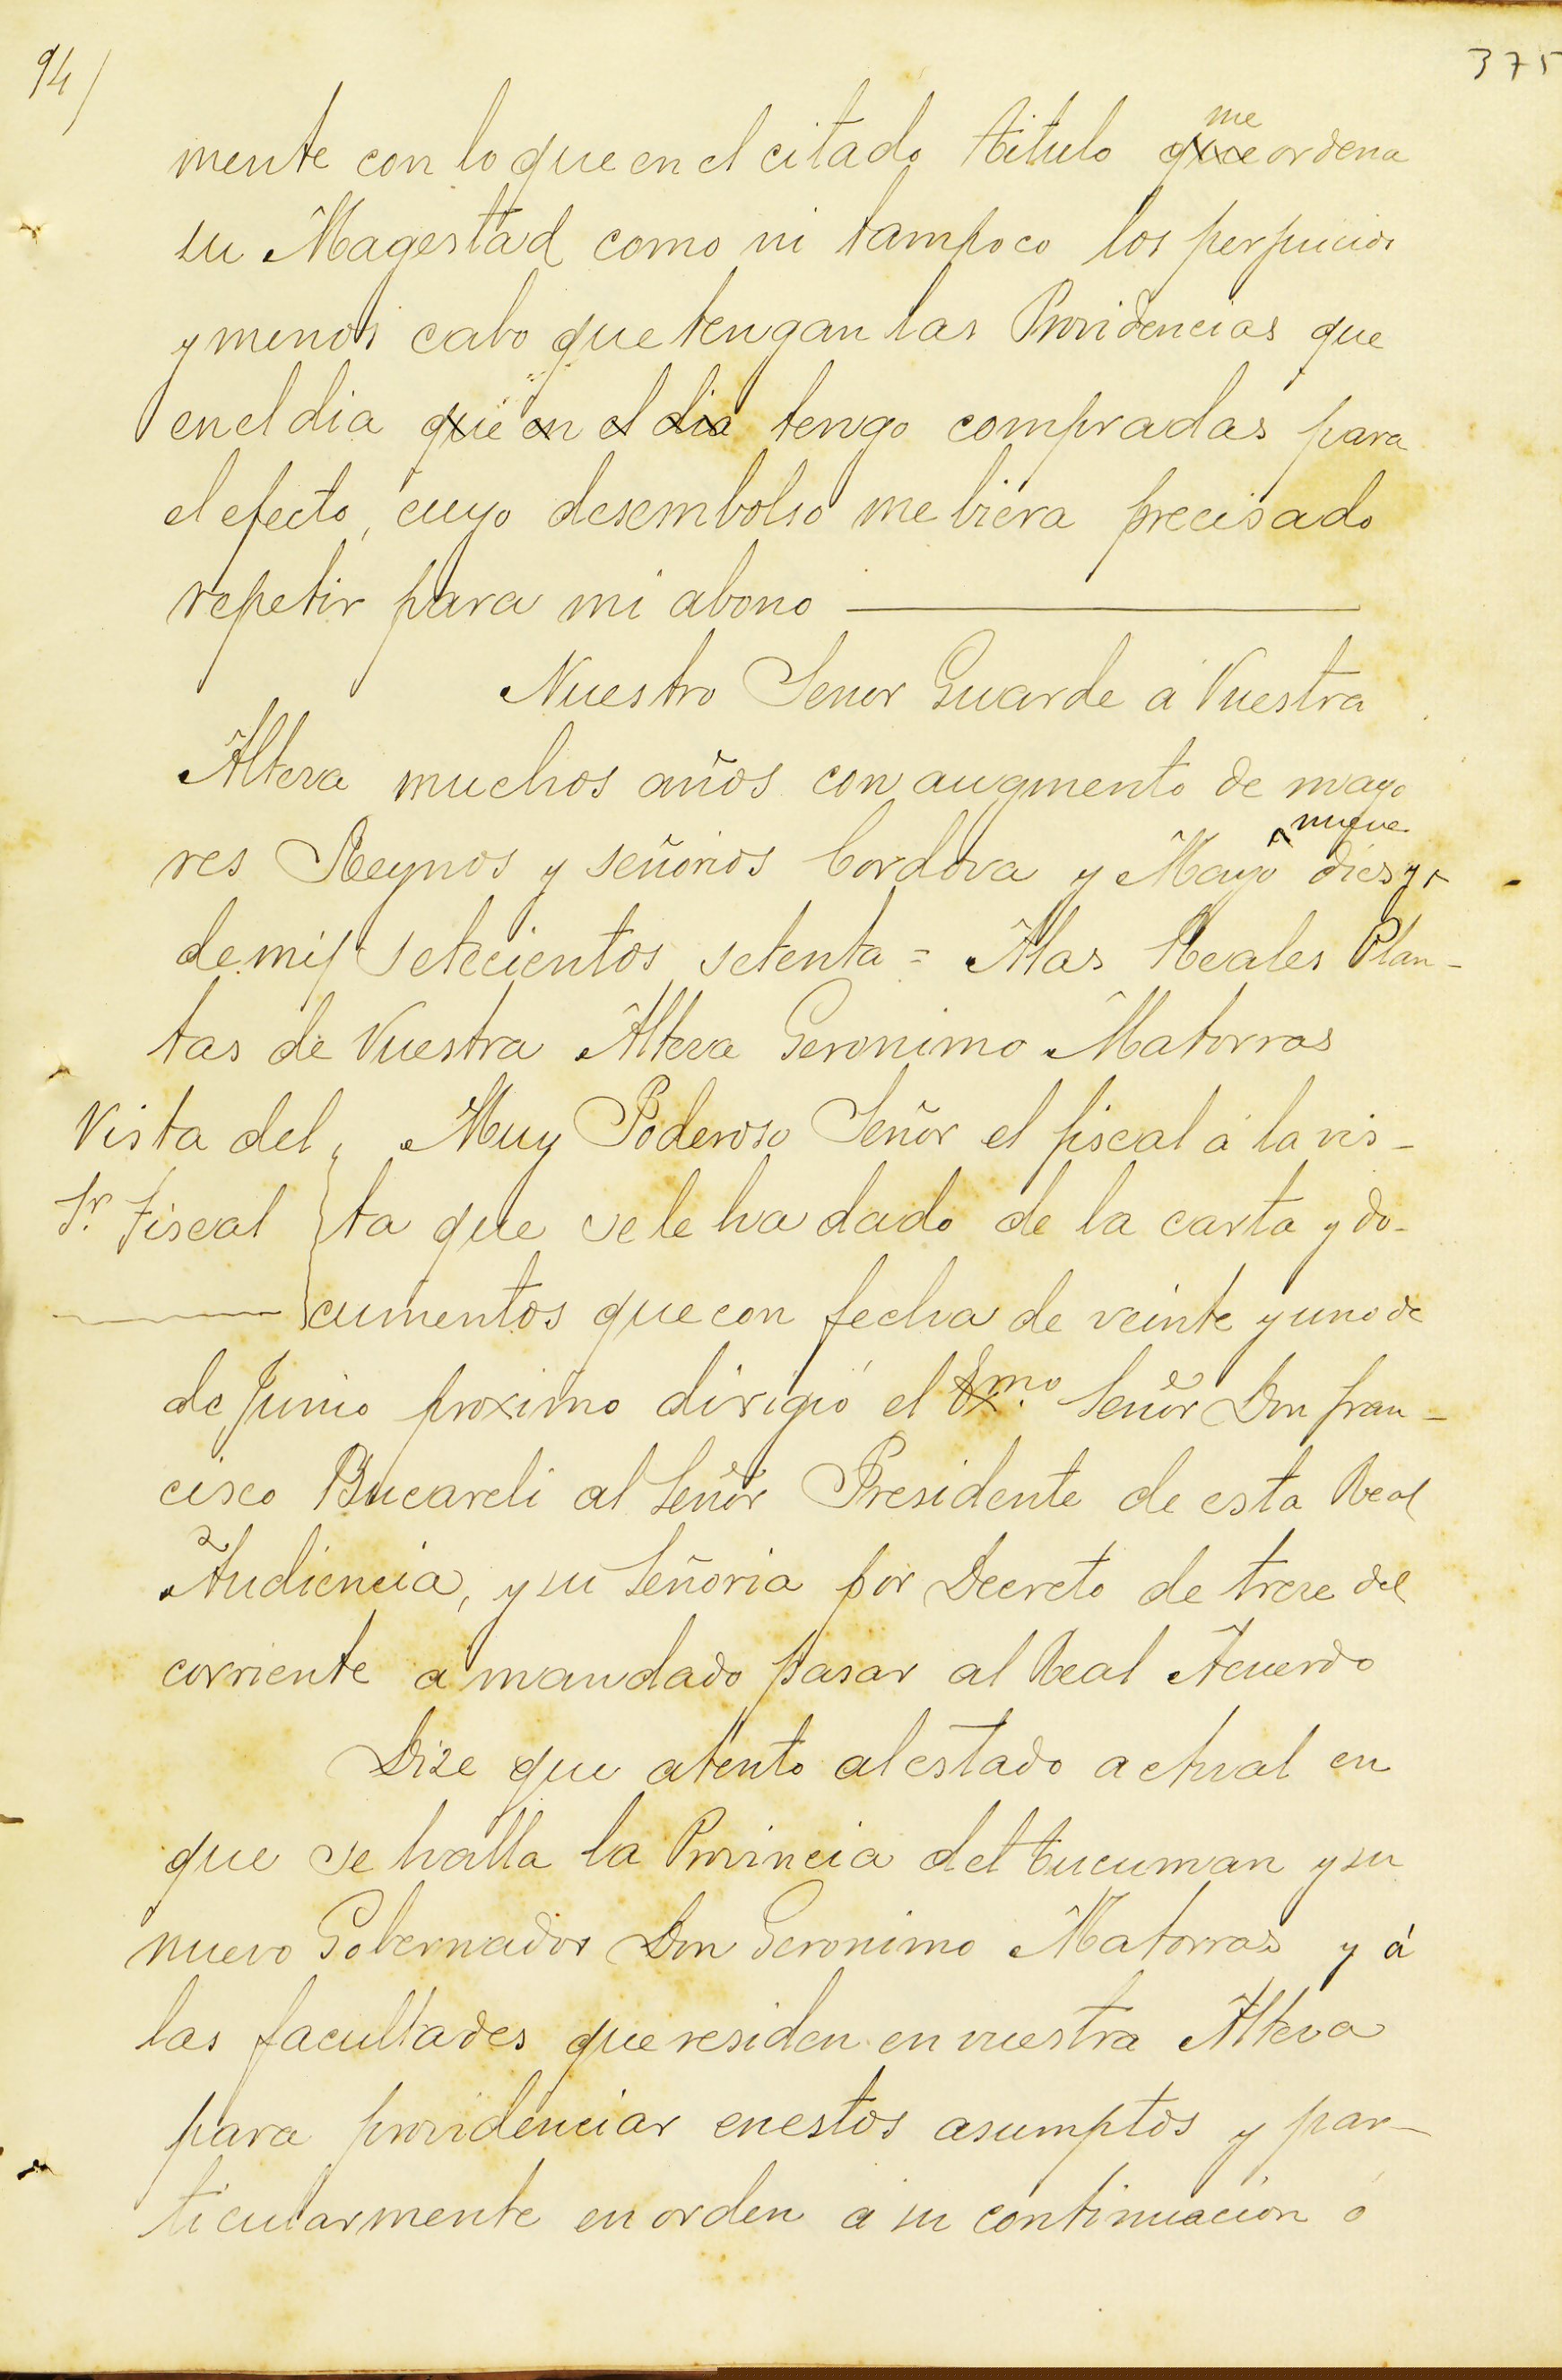 94/
375
mente con lo que en el citado titulo que me ordena
su Magestad como ni tampoco los perjuicios
y menos cabo que tengan las Providencias que
en el dia que en el dia tengo compradas para
el efecto, cuyo desembolso me biera precisado
repetir para mi abono
Nuestro Senor Guarde á Vuestra
Alteza muchos años con augmento de mayo
res Reynos y señorios Cordova y Mayo dies y nueve
de mil setecientos setenta = A las Reales Plan-
tas de Vuestra Alteza Geronimo Matorras
Vista del
Sr. Fiscal
Muy Poderoso Señor el fiscal á la vis-
ta que se le ha dado de la carta y do-
cumentos que con fecha de veinte y uno de
de Junio proximo dirigió el Exmo. Señor Don Fran-
cisco Bucareli al Señor Presidente de esta Real
Audiencia, y su Señoria por Decreto de treze del
corriente a mandado pasar al Real Acuerdo
Dize que atento al estado actual en
que se halla la Provincia del tucuman y su
nuevo Gobernador Don Geronimo Matorras y á
las facultades que residen en vuestra Alteza
para providenciar en estos asumptos y par-
ticularmente en orden a su continuacion ó